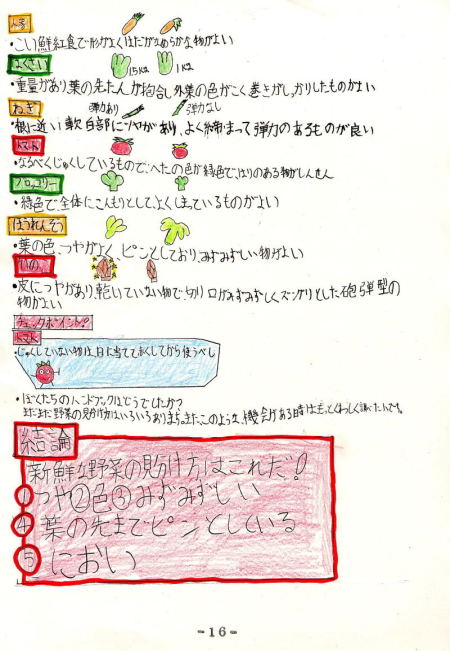 人参
・こい鮮紅色で形がよくはだがなめらかな物がよい
はくさい 1.5Kg 1Kg
・重量があり葉の先たんが抱合し外葉の色がこく巻きがしっかりしたものがよい
ねぎ 弾力あり 弾力なし
・根に近い軟白部につやがあり、よく締まって弾力のあるものが良い
トマト
・なるべくじゅくしているもので、へたの色が緑色で、はりのある物がしんせん
ブロッコリー
・緑色で、全体にこんもりとして、よくしまっているものがよい
ほうれんそう
・葉の色、つやがよく ピンとしており、みずみずしい物がよい
・皮につやがあり、乾いていない物で切り口がみずみずしく、ズングリとした砲弾型の
物がよい
チェックポイント!
トマト
・じゅくしていない物は、日に当てておくしてから使うべし
・ぼくたちのハンドブックはどうでしたかっ
まだまだ野菜の見分け方はいろいろありますまたこのような機会がある時はもっとくわしく調べたいです。
結論
新鮮な野菜の見分け方はこれだ!
①つや②色③みずみずしい
④葉の先までピンとしている
⑤におい
-16-